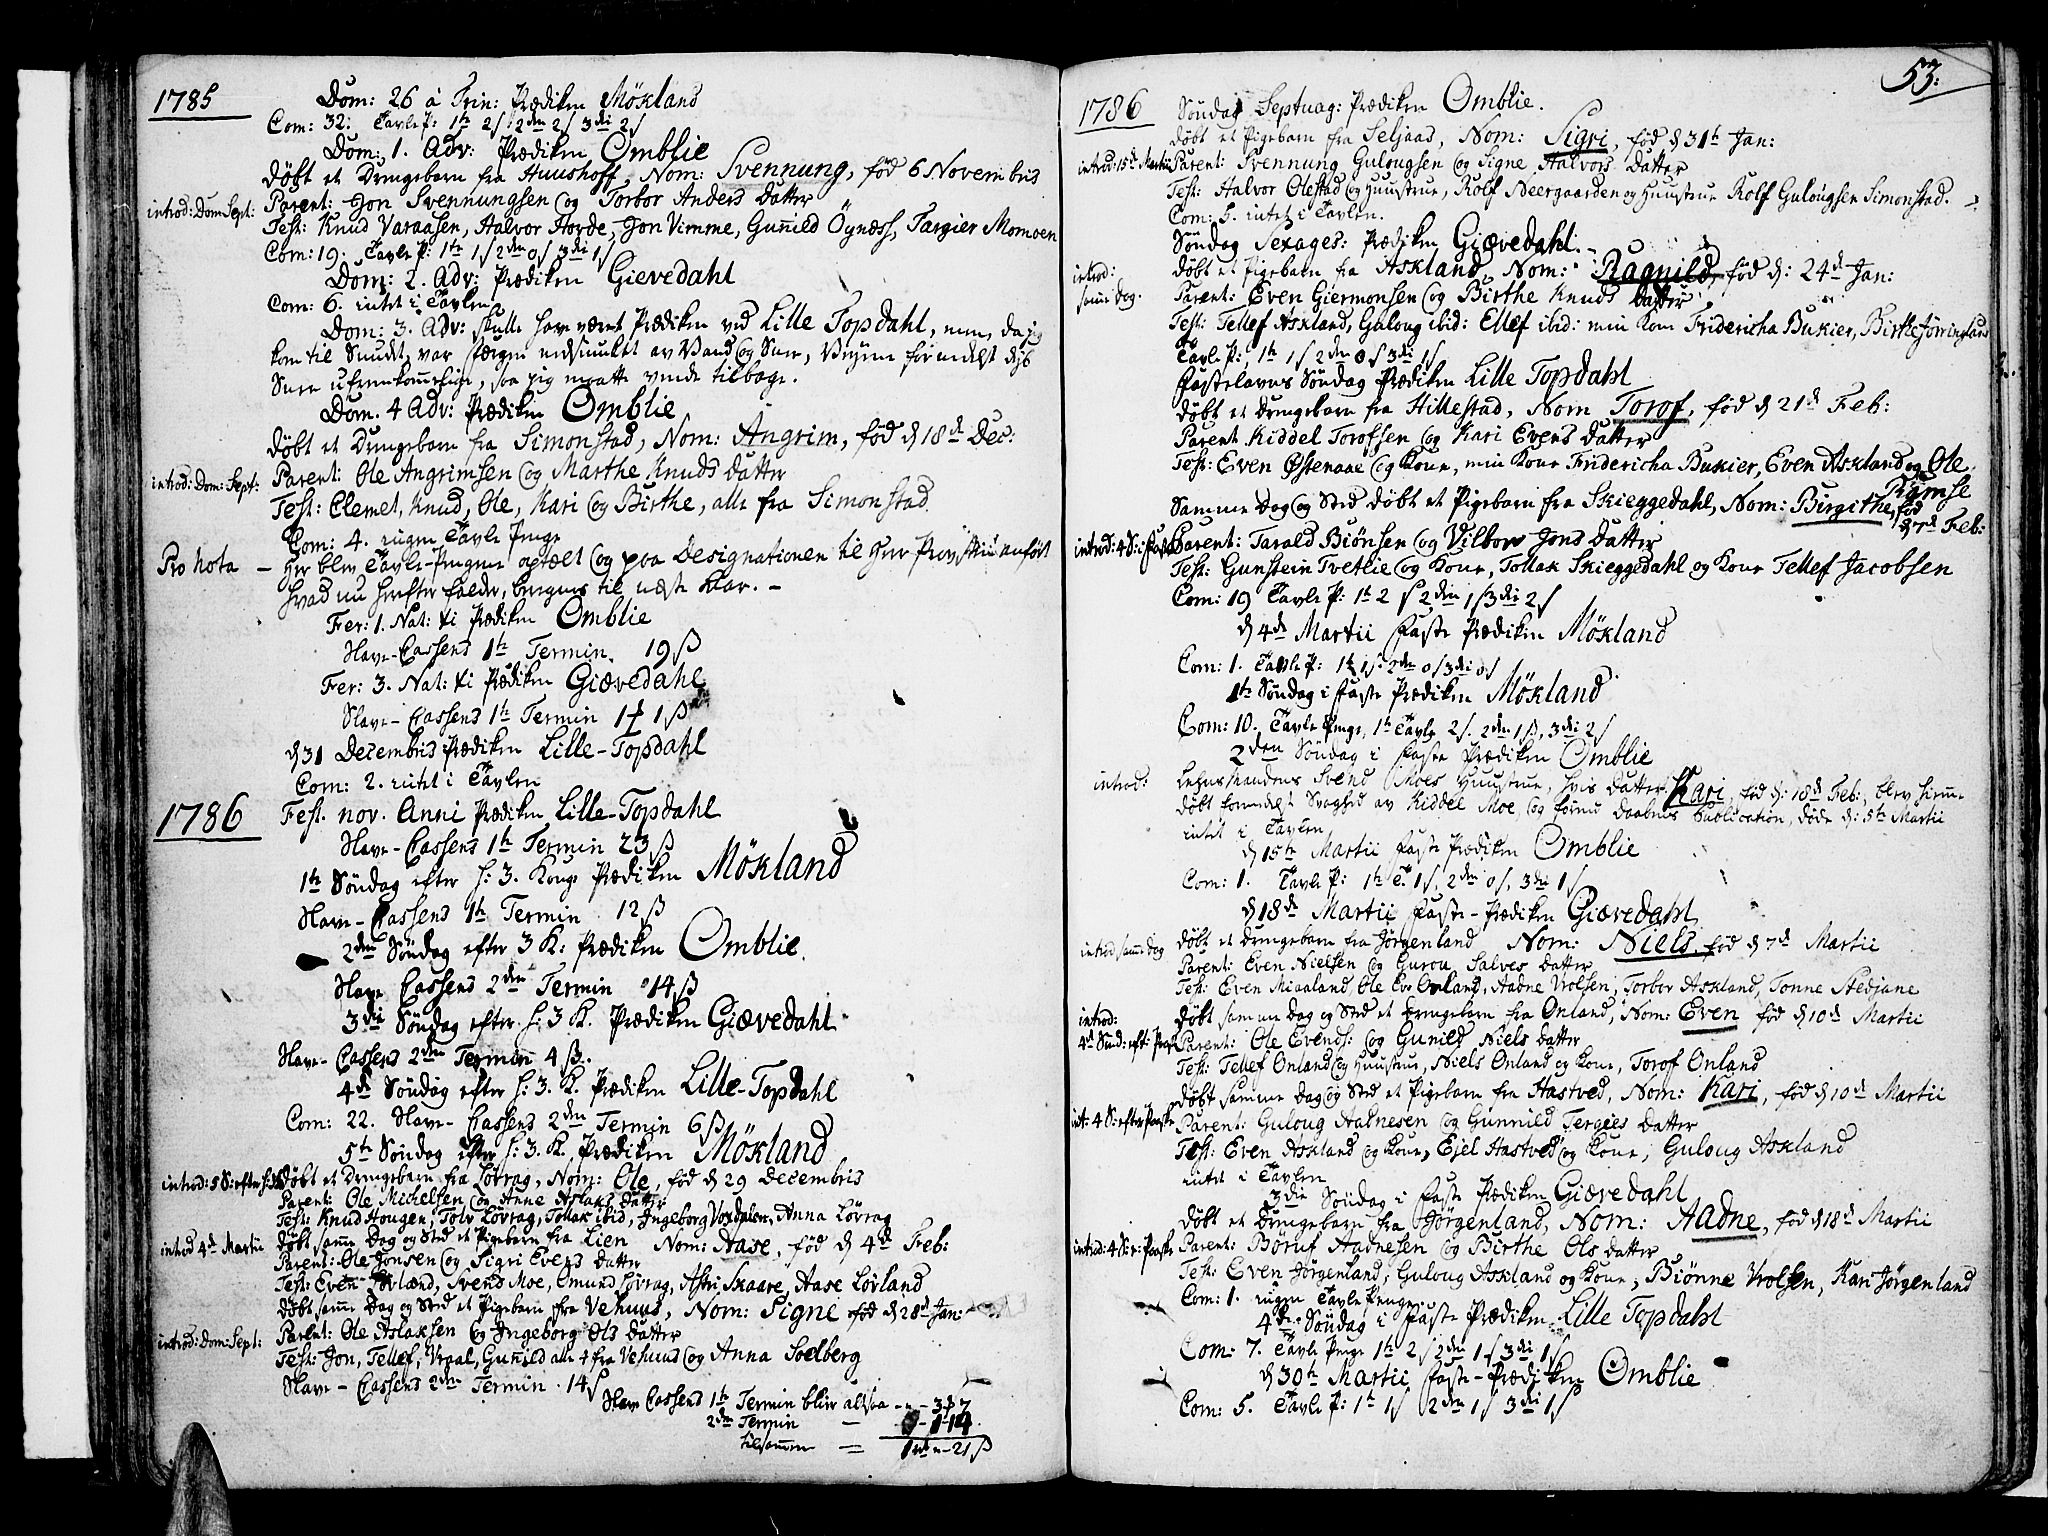 1785
Dom: 26 á Trin: Prædiken Mökland
Com: 32. Tavle P: 1te 2 s 2den 2 s 3die 2 s
Dom: 1. Adv: Prædiken Omblie
døbt et Drengebarn fra Huushoff, Nom: Svennung, fød 6 Novembris
introd: Dom: Sept: Parent: Jon Svennungsen og Torbor Anders Datter
Test: Knud Varaasen, Halvor Hovde, Jon Vimme, Guñild Öynæss, Targier Momoen
Com: 19. Tavle P: 1te 1 s 2den 0 s 3die 1 s
Dom: 2. Adv: Prædiken Gievedahl
Com: 6. intet i Tavlen
Dom: 3. Adv: skulle have været Prædiken ved Lille Topdahl, men da jeg
kom til Sundet, var færgen nedsunket av Vand og Snee, Veyene formedelst dyb
Snee ufremkommelige, saa jeg maatte vende tilbage.
Dom. 4 Adv: Prædiken Omblie
døbt et Drengebarn fra Simonstad, Nom: Angrim, fød d 18de Dec:
introd: Dom: Sept: Parent: Ole Angrimsen og Marthe Knuds Datter
Test: Clemet, Knud, Ole, Kari og Birthe, alle fra Simonstad
Com: 4. ingen Tavle Penge
Pro Nota - Her blev Tavle-Pengene optælt og paa Designationen til Herr Provsten anført
hvad nu herefter falder, beregnes til næste Aar. -
Fer: 1. Nat: Xi Prædiken Omblie
Slave-Cassens 1te Termin. 19 ß
Fer: 3. Nat: Xi Prædiken Giævedahl
Slave-Cassens 1te Termin 1 1 ß
d 31 Decembris Prædiken Lille-Topdahl
Com: 2. intet i Tavlen
1786 Fest. nov. Anni Prædiken Lille-Topdahl
Slave-Cassens 1te Termin 23 ß
1te Söndag efter h: 3. Konge Prædiken Mökland
Slave-Cassens 1te Termin 12 ß
2den Söndag efter 3 K: Prædiken Omblie
Slave Cassens 2den Termin 14 ß
3die Söndag efter h: 3 K. Prædiken Giævedahl
Slave-Cassens 2den Termin 4 ß.
4de Söndag efter h: 3. K. Prædiken Lille-Topdahl
Com: 22. Slave-Cassens 2den Termin 6 ß
5te Söndag efter h: 3. K. Prædiken Mökland
introd: 5 S: efter h: 3 K døbt et Drengebarn fra Løvrag, Nom: Ole, fød d 29 Decembris
Parent: Ole Michelsen og Anne Aslaks Datter
Test: Knud Hougen, Tolv Løvrag, Tollak ibid, Ingeborg Vordalen, Anna Lövrag
introd 4de Martii døbt samme Dag og Sted et Pigebarn fra Lien Nom: Aase, fød d 4de Feb:
Parent: Ole Jonsen og Sigri Evens Datter
Test: Even Lovland, Svend Moe, Omund Lövrag, Astri Skaare, Aase Lövland
døbt samme Dag og Sted et Pigebarn fra Vehuus, Nom: Signe fød d 28de Jan:
introd: Dom: Sept: Parent: Ole Aslaksen og Ingeborg Ols Datter
Test: Jon, Tellef, Vraal, Guñild alle 4 fra Vehuus og Anna Soelberg
Slave-Cassens 2den Termin 14 s
Slave Cassens 1te Termin bliver altsaa - - 3 7
2den Termin - 1 14
tilsammen = 1 - - 21 ß
53:
1786 Söndag Septuag: Prædiken Omblie.
døbt et Pigebarn fra Seljaas, Nom: Sigri, fød d 31te Jan:
introd: 15de Martii Parent: Svennung Gulougsen og Signe Halvors Datter
Test: Halvor Olestad og Huustrue, Rolf Neergaarden og Huustrue Rolf Gulougsen Simonstad.
Com: 5. intet i Tavlen.
Söndag Sexages: Prædiken Giævedahl
introd: samme dag. døbt et Pigebarn fra Askland, Nom: Ragnild, fød d: 24de Jan:
Parent: Even Giermonsen og Birthe Knuds Datter
Test: Tellef Askland, Guloug ibid: Ellef ibid: min Kone Fridericha Bukier, Birthe Jörringland
Tavle P: 1te 1 s 2den 0 s 3die 1 s
Fastelavns Söndag Prædiken Lille Topdahl
døbt et Drengebarn fra Hillestad, Nom Torof, fød d 21de Feb:
Parent Kiddel Torofsen og Kari Evens Datter
Test: Even Østenaae og Kone, min Kone Fridericha Bukier, Even Askland og Ole Ramse
Samme Dag og Sted døbt et Pigebarn fra Skieggedahl, Nom: Birgithe, fød d 7de Feb:
introd: 4 S: i Faste Parent: Tarald Biönsen og Vilbor Jons Datter
Test: Gunstein Tvetlie og Kone, Tollak Skieggedahl og Kone Tellef Jacobsen
Com: 19 Tavle P: 1te 2 s 2den 1 s 3die 2 s
d 4de Martii Faste Prædiken Mökland
Com: 1. Tavle P: 1te 1 s. 2den 0 s 3die 0 s
1te Söndag i Faste Prædiken Mökland
Com: 10. Tavle Penge, 1te Tavle 2 s. 2den 1 s, 3die 2 s
2den Söndag i Faste Prædiken Omblie
introd: Lehnsmandens Svend Moes Huustrue, hvis Datter Kari, fød d: 18de Feb:, blev hiemme-
døbt formedelst Svaghed av Kiddel Moe, og førend Daabens Publication, døde d: 5te Martii
intet i Tavlen
d 15te Martii Faste Prædiken Omblie
Com: 1. Tavle P: 1te T. 1 s, 2den 0 s, 3die 1 s
d 18de Martii Faste-Prædiken Giævedahl
introd samme dag døbt et Drengebarn fra Jörgenland Nom: Niels, fød d 7de Martii
Parent: Even Nielsen og Gurou Salves Datter
Test: Even Miaaland, Ole Onland, Aadne Vrolsen, Torbor Askland, Tonne Stedjane
introd: 4de Sönd: eft: Paaske døbt samme Dag og Sted et Drengebarn fra Onland, Nom: Even fød d 10de Martii
Parent: Ole Evends: og Gunild Niels Datter
Test: Tellef Onland og Huustrue, Niels Onland og Kone, Torof Onland
døbt samme Dag og Sted et Pigebarn fra Hastved, Nom: Kari, fød d 10de Martii
int: 4 S: efter Paaske Parent: Guloug Aadnesen og Gunnild Tergies Datter
Test: Even Askland og Kone, Ejel Hastved og Kone, Guloug Askland
intet i Tavlen
3die Söndag i Faste Prædiken Giævedahl
døbt et Drengebarn fra Jörgenland, Nom: Aadne, fød d 18de Martii
introd: 4 S: e: Paaske Parent: Böruf Aadnesen og Birthe Ols Datter
Test: Even Jörgenland, Guloug Askland og Kone, Biönne Vrolsen, Kari Jörgenland
Com: 1. ingen Tavle Penge
4de Söndag i Faste Prædiken Lille Topdahl
Com: 7. Tavle Penge 1te 2 s 2den 1 s 3die 1 s
d 30te Martii Faste-Prædiken Omblie
Com: 5. Tavle P: 1te 1 s 2den 1 s 3die 1 s